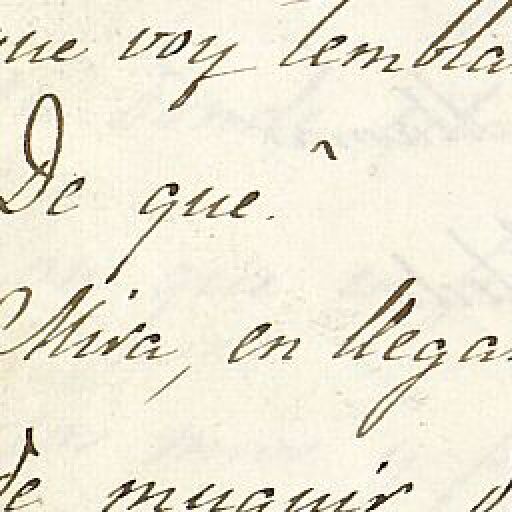 que voy tembla
De que.
Mira, en llega
de muquir